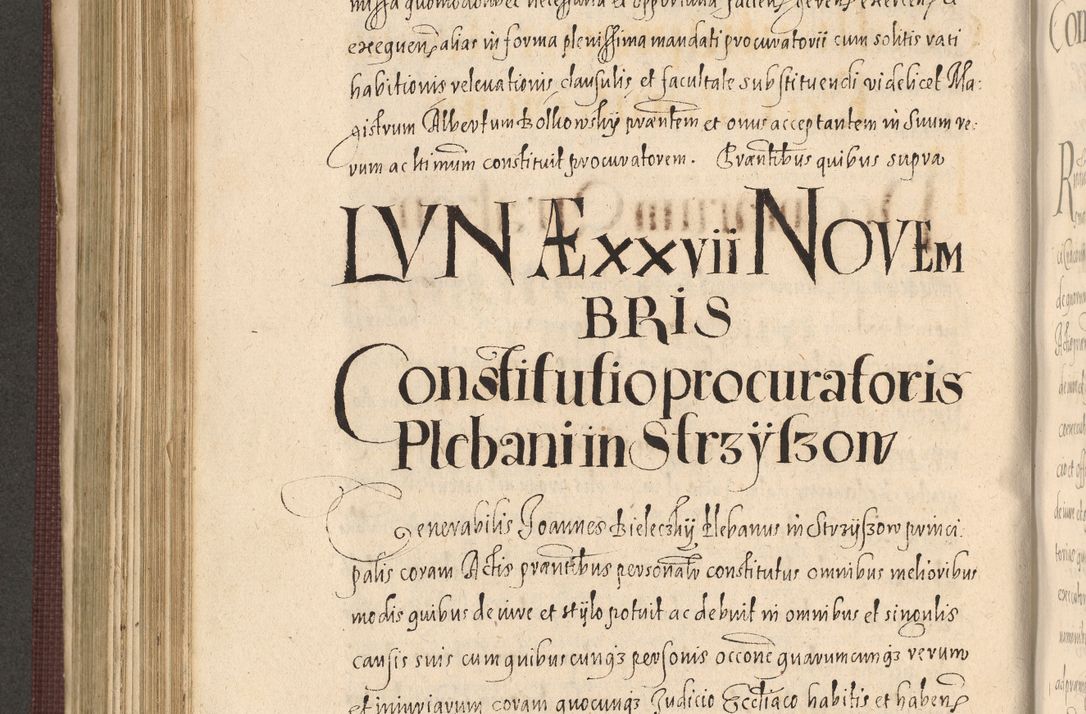 missa quomodolibet necessaria et opportuna faciend gerend exercend &
exequend alias in forma plenissima mandati procuratorii cum solitis rati
habitionis relevationis clausulis et facultate substituendi videlicet Ma:
gistrum Albertum Bolkowskÿ præntem et onus acceptantem in suum ve:
rum ac ltimum constituit procuratorem. Præntibus quibus supra
LVNÆ XXVII NOVEM
BRIS
Constitutio procuratoris
Plebani in Strzÿszow
Venerabilis Joannes Bieleczkÿ Plebanus in Strzÿszow princi:
palis coram Actis præntibus personalr constitutus omnibus melioribus
modis quibus de iure et stÿlo potuit ac debuit in omnibus et singulis
causis suis cum quibuscunqз personis occone quarumcunqз rerum
et iniuriarum coram quocunqз Judicio Ecctiaco habitis et habend